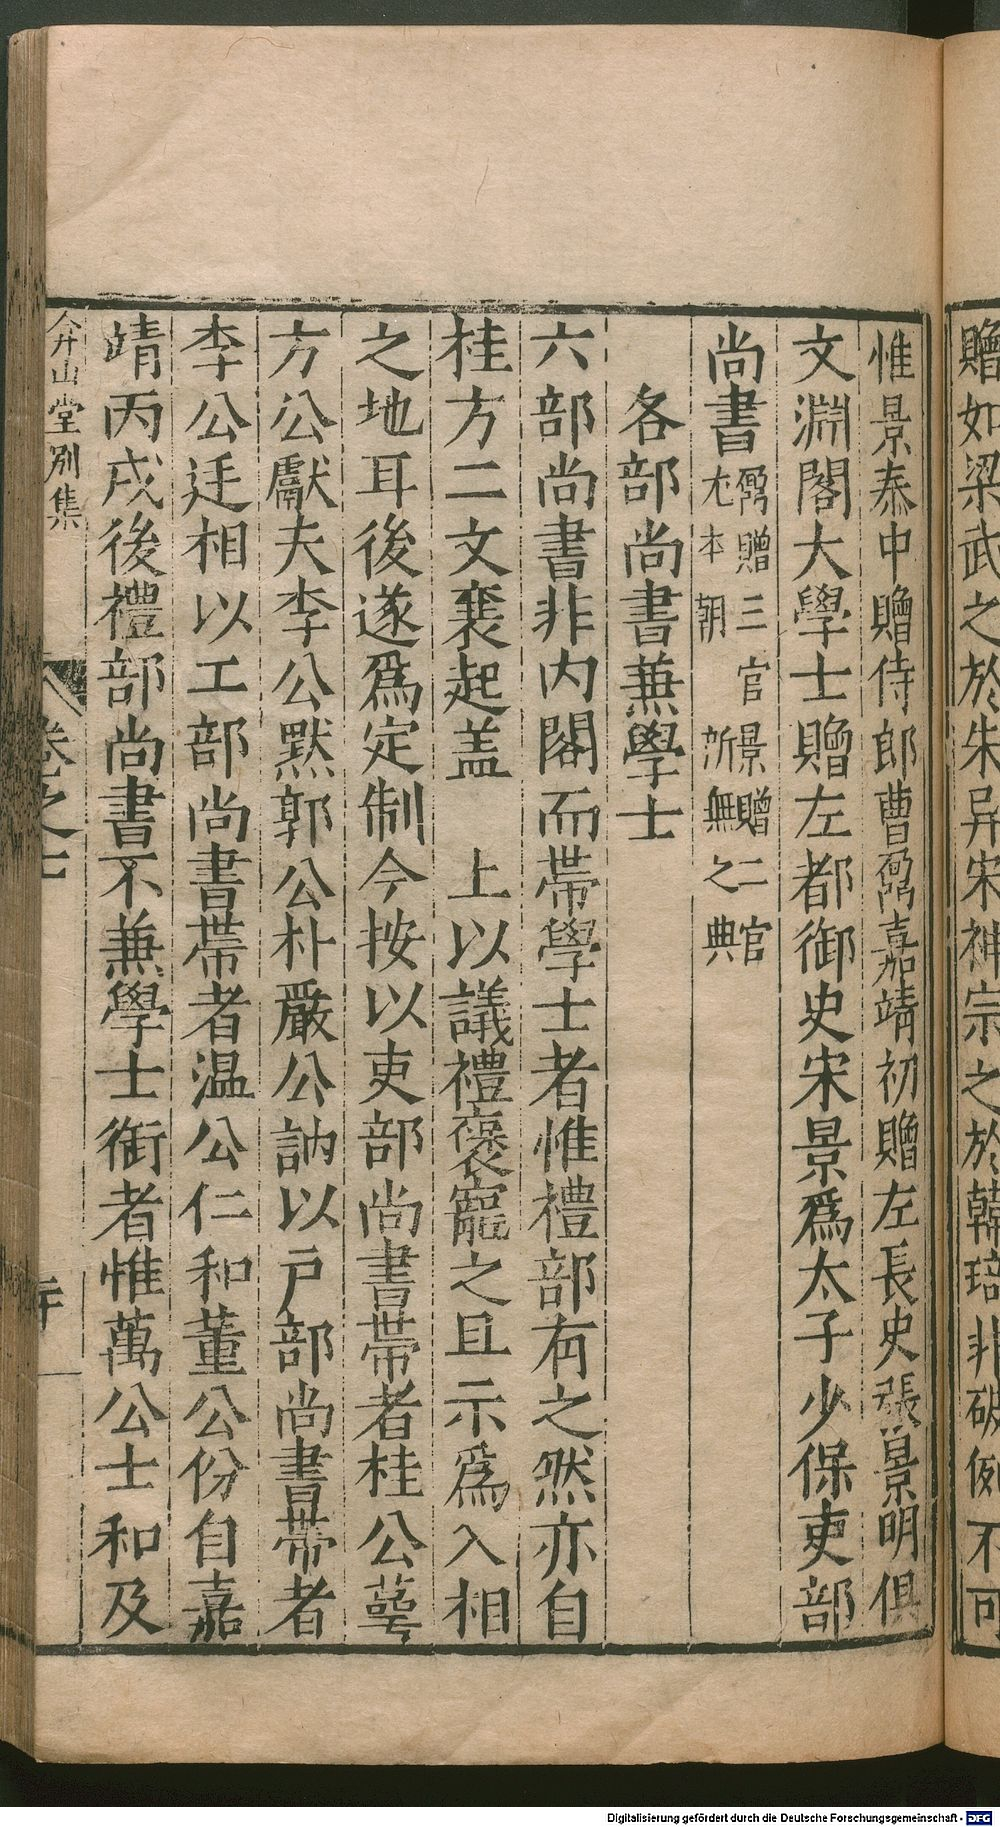 贈如梁武之於朱异宋神宗之於韓琦非破例不可
惟景泰中贈侍郎曹鼐嘉靖初贈左長史張景明俱
文淵閣大學士贈左都御史宋景爲太子少保吏部
尚書鼐贈三官景贈二官
尤本朝所無之典
各部尚書兼學士
六部尚書非内閣而帶學士者惟禮部有之然亦自
桂方二文襄起盖 上以議禮褒寵之且示爲入相
之地耳後遂爲定制今按以吏部尚書帶者桂公萼
方公獻夫李公默郭公朴嚴公訥以戶部尚書帶者
李公廷相以工部尚書帶者温公仁和董公份自嘉
靖丙戌後禮部尚書不兼學士銜者惟萬公士和及
弇山堂別集 卷之七
Digitalisierung gefördert durch die Deutsche Forschungsgemeinschaft - DFG